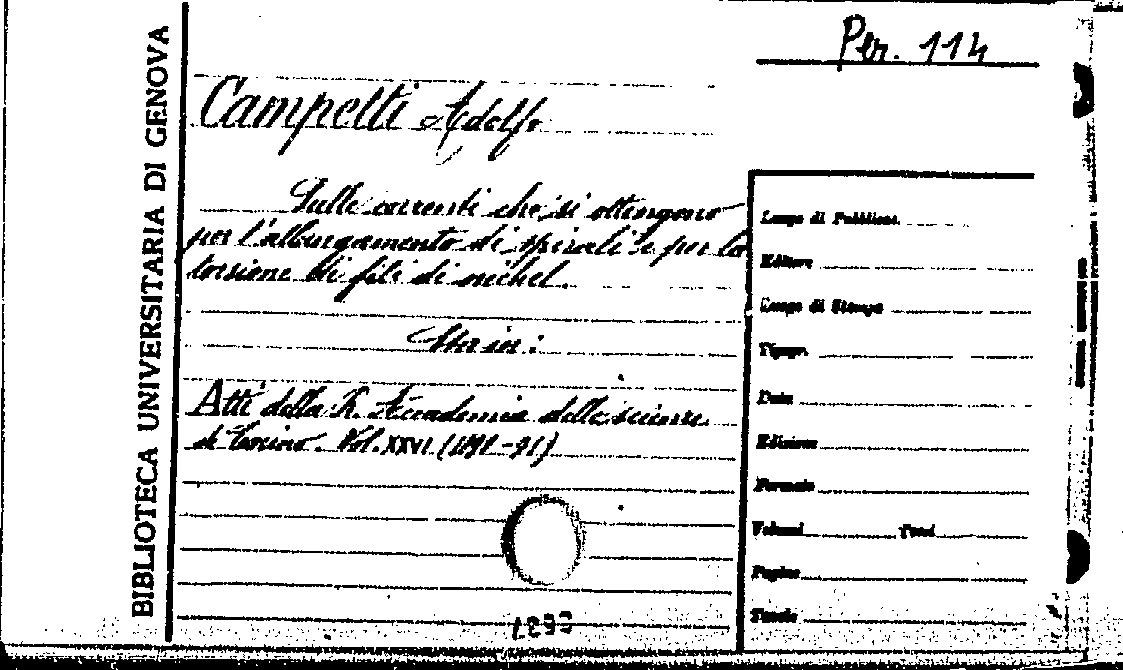 BIBLIOTECA UNIVERSITARIA DI GENOVA
Per. 114
Campetti Adolfo
Sulle correnti che si ottengono
per l'allungamento di spirali e per la
torsione di fili di nichel.
Sta in:
Atti della R. Accademia delle scienze
di Torino. Vol. XXVI (1891-91)
Luogo di Pubblicaz.
Editore
Luogo di Stampa
Tipogr.
Data
Edizione
Formato
Volumi Tomi
Pagine
Tavole